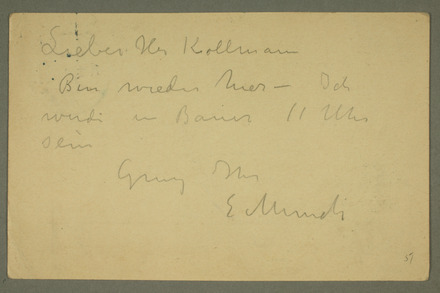 Lieber Her Kollmann
Bin wieder hier – Ich
werde in Bauer 11 Uhr
sein
Gruss Ihr
E Munch
51